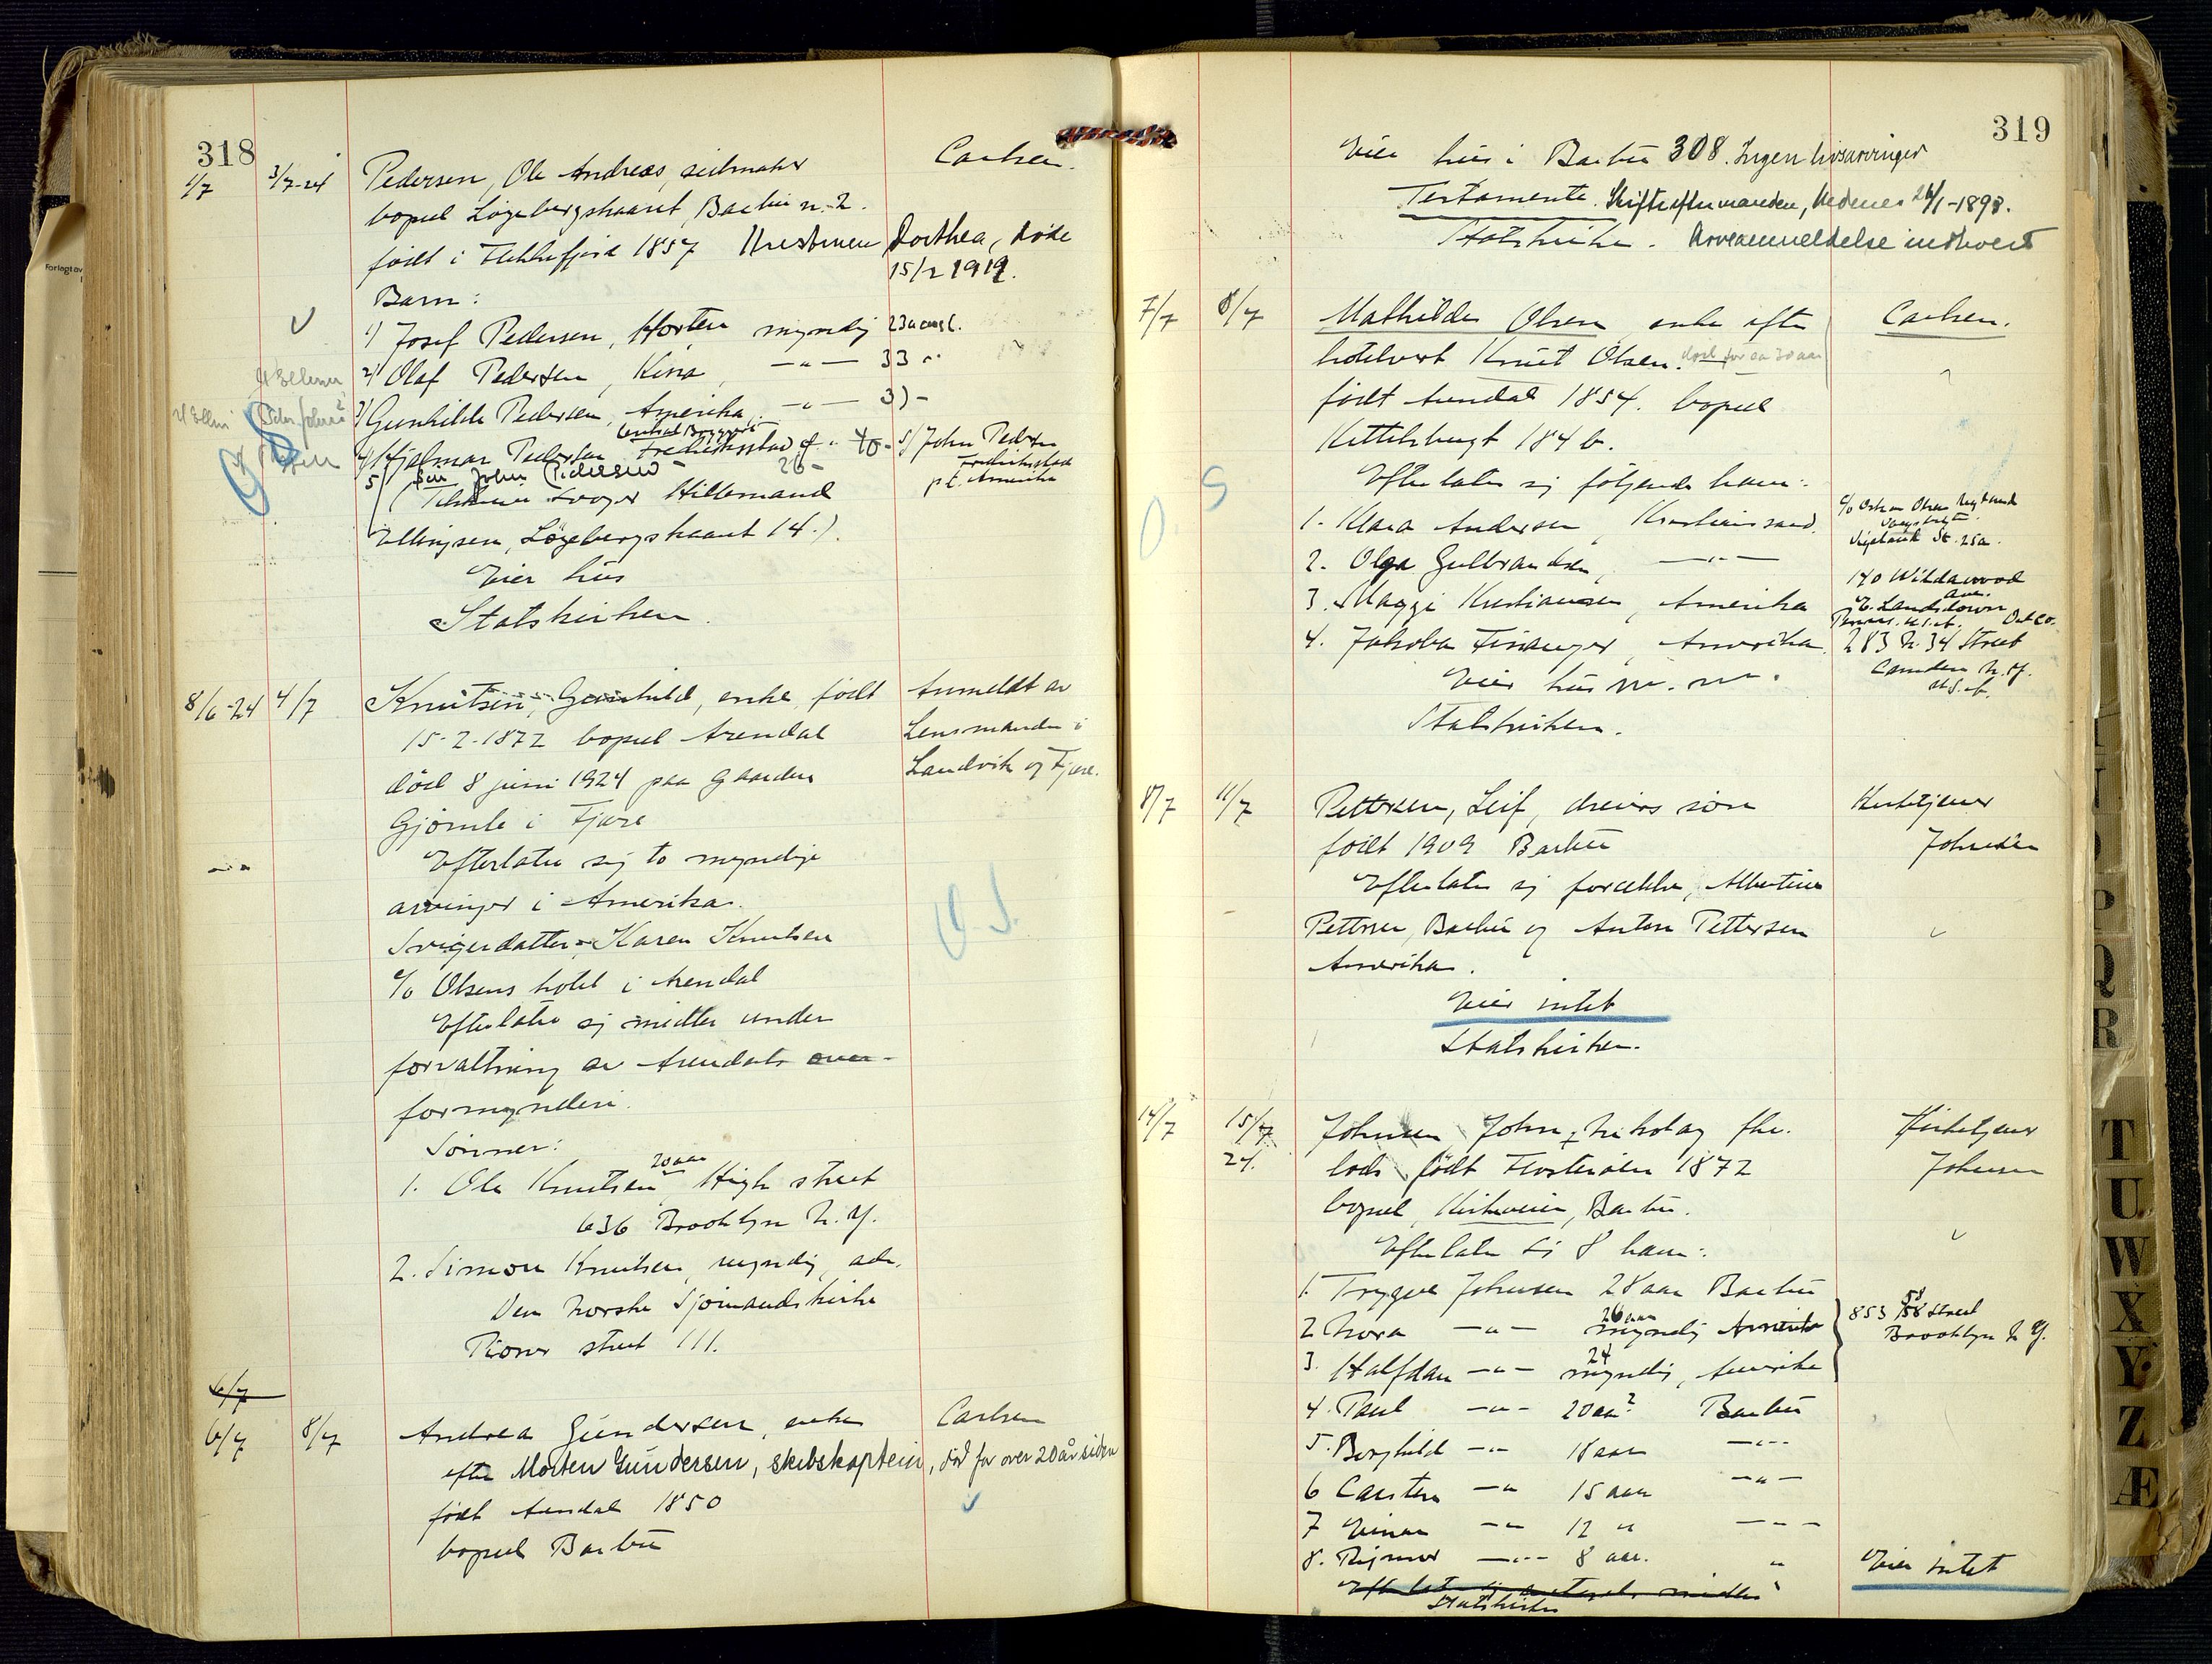 318
1/7 3/7-24 Pedersen, Ole Andreas, seilmaker Carlsen.
bopel Løgebergskaaret, Barbu n. 2.
født i Flekkefjord 1857 Hustruen Dorthea, døde
15/2 1912.
Barn:
1) Josef Pedersen, Horten myndig 23 aar
2) Olaf Pedersen, Kina, -"- 33 "
3) Gunhilde Pedersen, Amerika, -"-
4) Hjalmar Pedersen Fredriksstad 40 - 5/ John Pedersen
Fredriksstad
p.t. Amerika
5 John Pedersen 26 -
Svoger Hillemand
Ellingsen, Løgebergskaaret 14.)
Eier hus
Statskirken.
8/6-24 4/7 Knutsen, Gunhild, enke, født Anmeldt av
15-2-1872 bopel Arendal Lensmanden i
død 8 juni 1924 paa gaarden Landvik og Fjære.
Gjømle i Fjære
Efterlater sig to myndige
arvinger i Amerika.
Svigerdatter: Karen Knutsen
c/o Olsens hotel i Arendal
Efterlater sig midler under
forvaltning av Arendals over-
formynderi.
Sønner:
20 aar
1. Ole Knutsen, High street
636 Brooklyn N.Y.
2. Simon Knutsen, myndig, adr.
Den norske Sjømandskirke
street 111.
6/7
6/7 8/7 Andrea Gundersen, enke Carlsen
efter Morten Gundersen, skibskaptein, død for over 20 år siden
født Arendal 1850
bopel Barbu
319
Eier hus i Barbu 308. Ingen livsarvinger
Testamente. Skifte efter manden, Nedenes 24/1-1898.
Statskirken. Arveanmeldelse indlevert
7/7 8/7 Mathilde Olsen enke efter Carlsen.
hotelvert Knut Olsen. død for ca 30 aar
født Arendal 1854. bopel
Kittelsbugt 184 b.
O. S
Efterlater sig følgende barn:
1. Klara Andersen, Kristianssand. c/o Oskar Olsen
25a.
2. Olga Gulbrandsen, -"-
3. Maggi Kristiansen, Amerika 140 Wildwood
Ave.
E. Landsdown
Penns. U.S.A. Del Co.
4. Jakoba Finanger, Amerika. 283 N. 34 Street
Camden N.J.
U.S.A.
Eier hus m.m.
Statskirken.
8/7 11/7 Pettersen, Leif, dreiers søn Kirketjener
født 1909 Barbu Johnsen
Efterlater sig forældre, Albertine
Pettersen, Barbu og Anton Pettersen
Amerika.
Eier intet
Statskirken.
14/7 15/7 Johnsen, John Nikolay fhv. Kirketjener
24. lods født Flosterøen 1872 Johnsen
bopel, Kirkeveien, Barbu.
Efterlater sig 8 barn:
1. Trygve Johnsen 28 aar Barbu
26 aar
2 Nora -"- myndig Amerika 853 58 Street
Brooklyn N.Y.
24
3. Halfdan -"- myndig, Amerika
4. Paul -"- 20 aar? Barbu
5. Borghild -"- 18 aar -"-
6 Carsten -"- 15 aar -"-
7 Einar -"- 12 " -"-
8. Rigmor -"- 8 aar. "
Eier intet
Statskirken